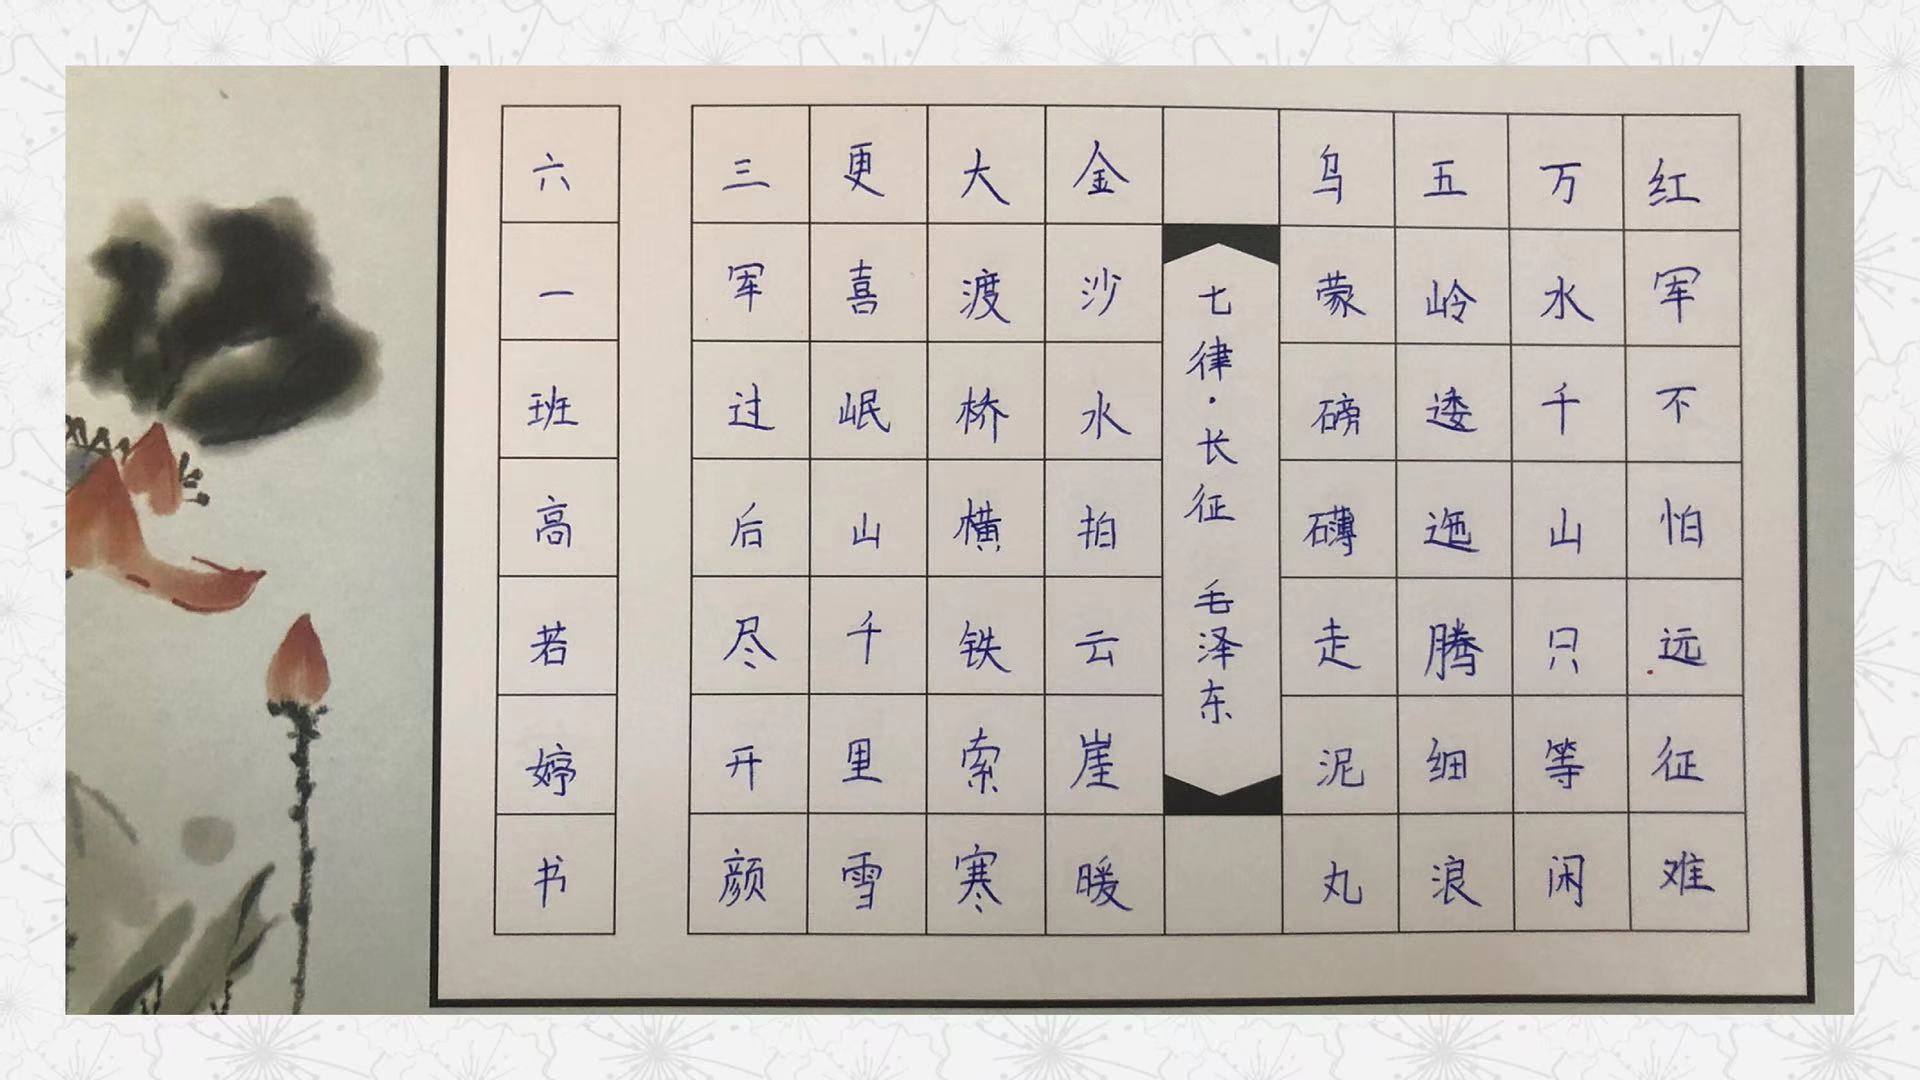 红军不怕远征难
万水千山只等闲
五岭逶迤腾细浪
乌蒙磅礴走泥丸
七律·长征 毛泽东
金沙水拍云崖暖
大渡桥横铁索寒
更喜岷山千里雪
三军过后尽开颜
六一班高若婷书